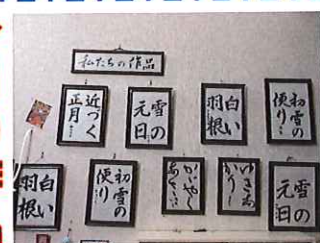 私たちの作品
近づく
正月
雪の
元日
白い
羽根
初雪の
便り
白い
羽根
初雪の
便り
雪の
元日